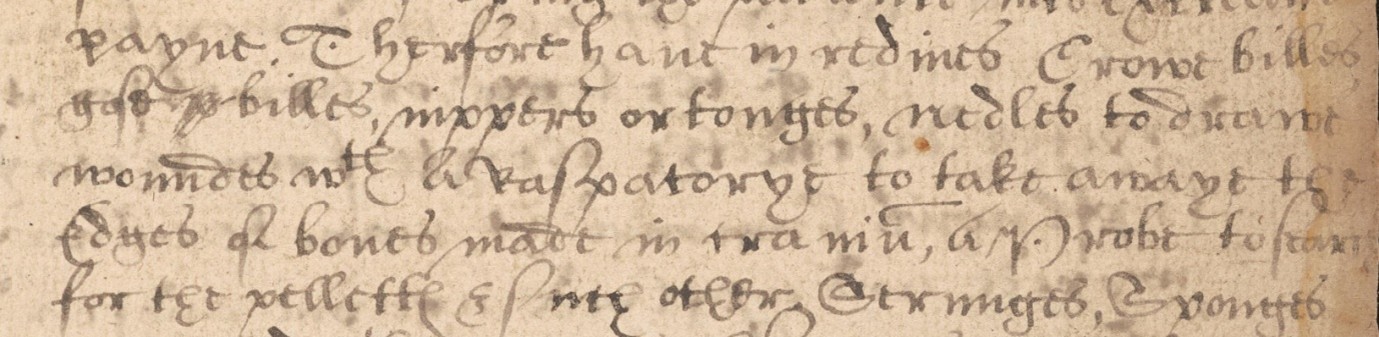 payne. Therfore have in redines Crowe billes
gose billes, nippers or tonges, nedles to drawe
woundes wth A Raspatorye to take awaye the
Edges of bones made in craniū, A Probe to searc
for the pellett & such other, Serringes, Sponges